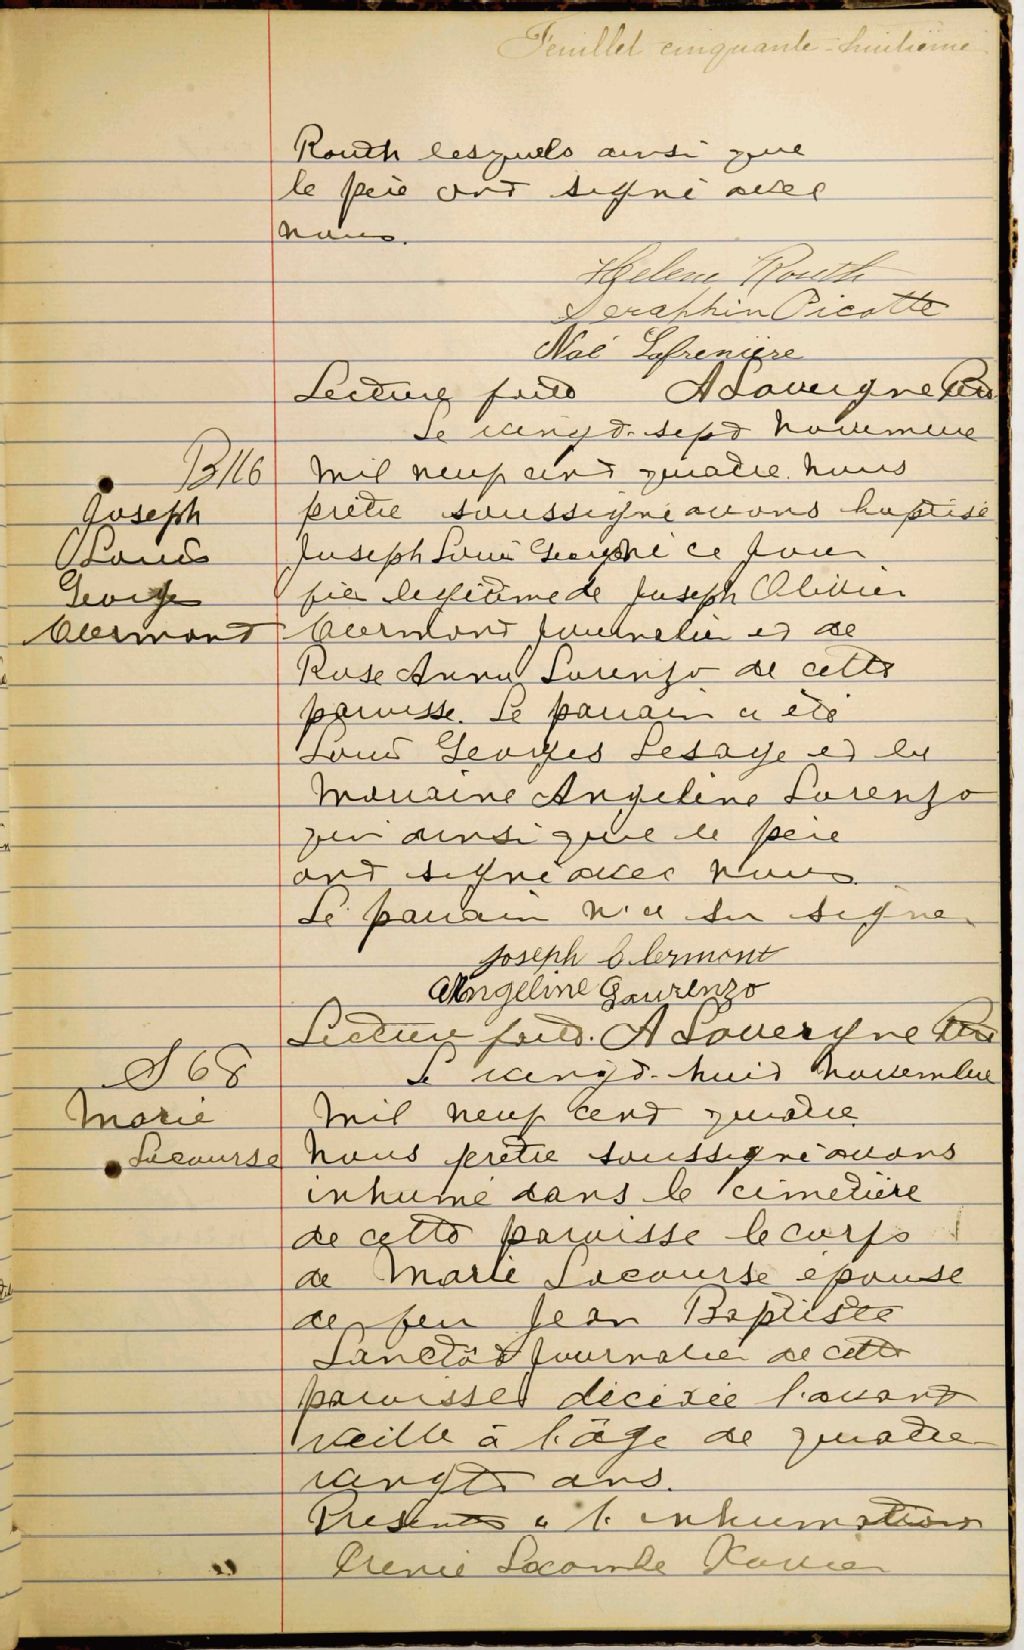 Feuillet cinquante-huitième
Routh lesquels ainsi que
le père ont signé avec
nous.
Helene Routh
Seraphin Picotte
Noé Lafrenière
Lecture faite A Lavergne Ptre
Le vingt-sept novembre
B116
mil neuf cent quatre nous
Joseph
prêtre soussigné avons baptisé
Louis
Joseph Louis George né ce jour
George
fils légitime de Joseph Olivier
Clermont
Clermont journalier et de
Rose Anna Lorenzo de cette
paroisse. Le parrain a été
Louis Georges Lesage et la
marraine Angeline Lorenzo
qui ainsi que le père
ont signé avec nous.
Le parrain n'a su signer
Joseph Clermont
Angeline Laurenzo
Lecture faite. A Lavergne Ptre
S 68
Le vingt-huit novembre
Marie
mil neuf cent quatre
Lacourse
nous prêtre soussigné avons
inhumé dans le cimetière
de cette paroisse le corps
de Marie Lacourse épouse
de feu Jean Baptiste
Lanctôt journalier de cette
paroisse décédée l'avant
veille à l'âge de quatre
vingt ans.
Présents à l'inhumation
Lacombe Xavier